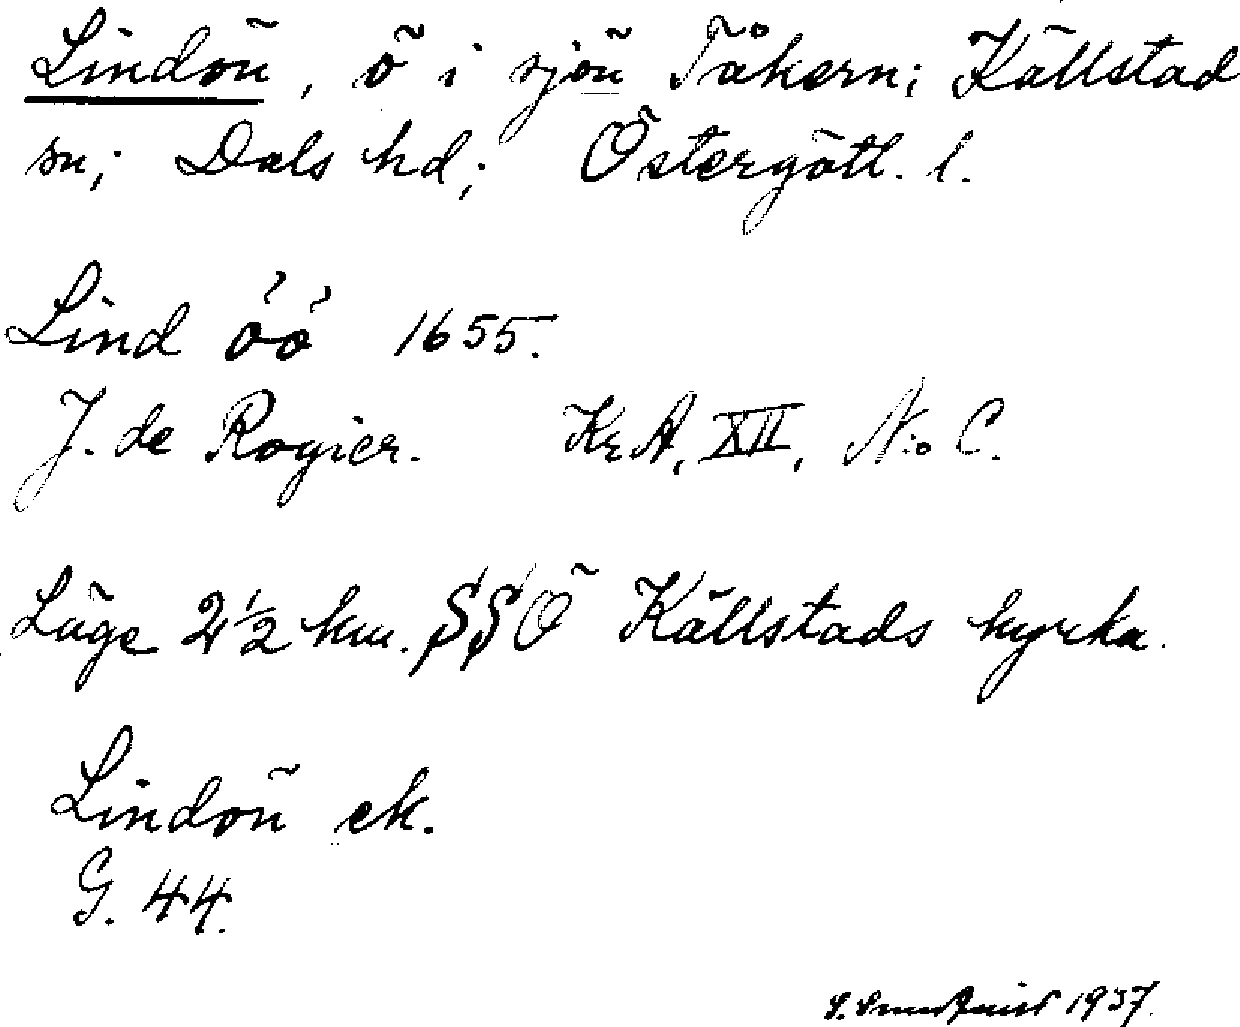 Lindön, ö i sjön Tåkern; Källstad
sn; Dals hd; Östergötl. l.
Lind öö 1655.
J. de Rogier. KrA, XII, N:o C.
Läge 2 1/2 km. SSÖ Källstads kyrka.
Lindön ek.
G. 44.
1937.